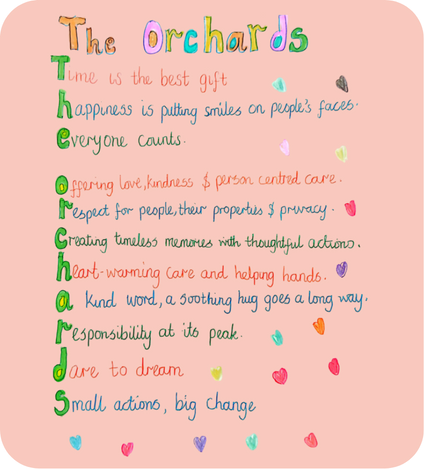 The Orchards
Time is the best gift
happiness is putting smiles on people's faces.
everyone counts.
offering love, kindness & person centred care.
respect for people, their properties & privacy.
Creating timeless memories with thoughtful actions.
heart-warming care and helping hands.
a kind word, a soothing hug goes a long way.
responsibility at its peak.
dare to dream
Small actions, big change